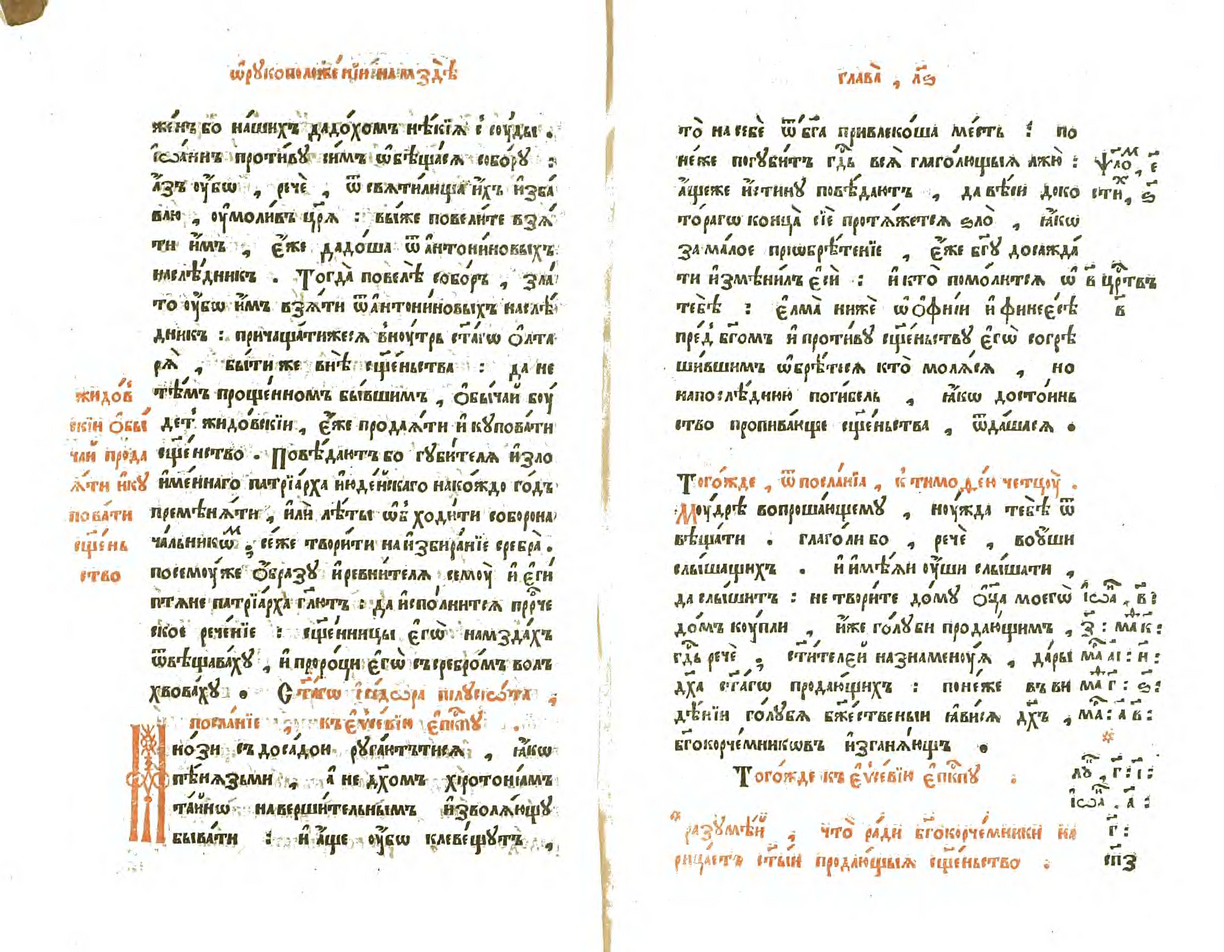 ѿрꙋкоположе́нїи наⷨздѣ̀
же́нъ бо на́шихъ дадо́хомъ нѣ́кїѧ и҆ сꙋ́ды .
і҆ѡа́ннъ проти́вꙋ си́мъ ѡ҆бѣща́сѧ собо́рꙋ :
а҆́зъ ᲂу҆́бѡ , речѐ , ѿ свѧти́лища и҆́хъ и҆зба́
влю , ᲂу҆моли́въ цр҃ѧ̀ : вы́же повели́те взѧ́
ти и҆̀мъ , є҆́же дадо́ша ѿ а҆нтони́новыхъ
наслѣ́дникъ . Тогда̀ повелѣ̀ собо́ръ , зла́
то ᲂу҆́бѡ и҆̀мъ взѧ́ти ѿ а҆нтони́новыхъ наслѣ́
дникъ : причаща́тижесѧ вноу́трь ст҃а́гѡ ѻ҆лта
рѧ̀ , бы́ти же внѣ̀ сщ҃е́ньства : да не
тѣ́мъ проще́нномъ бы́вшимъ , ѻ҆бы́чай бꙋ́
детъ жидо́вскїи , є҆́же продаѧ́ти и҆ кꙋпова́ти
сщ҃е́нство . Повѣ́даютъ бо гꙋби́телѧ и҆зло
и҆ме́ннаго патрїа́рха и҆юде́йскаго на ко́ждо го́дъ
премѣнѧ́ти , и҆лѝ лѣ́ты ѡ҆бⸯходи́ти соборона
ча́льникѡⷨ , се́же твори́ти на и҆збира́нїе сребра̀ .
посемоу́же ѻ҆́бразꙋ и҆ ревни́телѧ семоу̀ и҆ є҆ги́
птѧне патрїа́рха гл҃ютъ : да и҆спо́лнитсѧ прⷪ҇рче
ское рече́нїе : сщ҃е́нницы є҆гѡ̀ на мзда́хъ
ѿвѣщава́хꙋ , и҆ проро́цы є҆гѡ̀ съ сребро́мъ вол
хвова́хꙋ . Ст҃а́гѡ і҆си́дѡра пилꙋсиѡ́та ,
посла́нїе , къ є҆ѵсе́вїю є҆пⷭ҇кпꙋ .
Мно́зи съ доса́дою рꙋга́ютътисѧ , ꙗ҆́кѡ
пѣ́нѧзьми , а҆ не дх҃омъ хиротонїа́мъ
та́йнѡ наверши́тельнымъ и҆зволѧ́ющꙋ
быва́ти : и҆ а҆́ще ᲂу҆́бѡ клеве́щꙋтъ ,
жидо́в
скїи ѻ҆бы́
чай прода
ѧ́ти и҆ кꙋ
пова́ти
сщ҃е́нь
ство
глава̀ , л҃ѕ
то̀ на себѐ ѿ бг҃а привлеко́ша ме́сть : по
не́же погꙋби́тъ гд҇ь всѧ̀ глаго́лющыѧ лжю̀ :
а҆́щеже и҆́стинꙋ повѣ́даютъ , да вѣ́си доко
то́рагѡ конца̀ сїѐ протѧ́жетсѧ ѕло̀ , ꙗ҆́кѡ
за ма́лое приѡбрѣ́тенїе , є҆́же бг҃ꙋ досажда́
ти и҆змѣни́лъ є҆сѝ : и҆ кто̀ помо́литсѧ ѡ҆
тебѣ̀ : є҆лма̀ ниже ѡ҆ ѻ҆фни́и и҆ финее́сѣ
пре́д бг҃омъ и҆ проти́вꙋ сщ҃е́ньствꙋ є҆гѡ̀ согрѣ
ши́вшимъ ѡ҆брѣ́тесѧ кто̀ молѧ́сѧ , но
напослѣ́днюю поги́бель , ꙗ҆́кѡ досто́инь
ство пропива́юще сщ҃е́ньства , ѿда́шасѧ .
Тогѡ́жде , ѿ посла́нїѧ , к тимоѳе́ю четцоу̀ .
Моу́дрѣ вопроша́ющемꙋ , ноу́жда тебѣ̀ ѿ
вѣща́ти . глаго́ли бо , речѐ , во ᲂу҆́ши
слы́шащихъ . и҆ и҆мѣ́ѧи ᲂу҆́ши слы́шати ,
да слы́шитъ : не твори́те до́мꙋ ѻ҆ц҃а̀ моегѡ̀
до́мъ коу́пли , и҆́же го́лꙋби продаю́щимъ ,
гд҇ь речѐ , ст҃и́телей назнаменоу́ѧ , да́ры
дх҃а ст҃а́гѡ продаю́щихъ : поне́же въ ви
дѣ́нїи го́лꙋбѧ бж҃е́ственыи ꙗ҆ви́сѧ дх҃ъ ,
бг҃окорче́мникѡвъ и҆зганѧ́ющъ .
Тогѡ́жде къ є҆ѵсе́вїю є҆пⷭ҇кпꙋ .
разꙋмѣ́й , что̀ ра́ди бг҃окорче́мники на
рица́етъ ст҃ы́й продаю́щыѧ сщ҃е́ньство .
ѱлоⷨ , є҃
стиⷯ , ѕ҃
в҃ црⷭ҇твъ
в҃
і҆ѡаⷩ , в҃ :
з҃ : маⷬк :
маⷮ аі : и҃ :
маⷮ г҃ : ѕ҃ :
маⷮ : а҃ в҃ :
лꙋⷦ , г҃ : і҃ :
і҆ѡаⷩ . а҃ :
г҃ :
спз